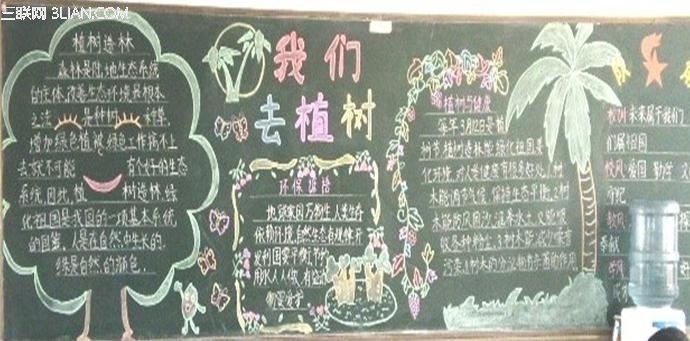 三联网 3LIAN.COM
植树造林
森林是陆地生态系统
的主体,改善生态环境是根本
之法 是种树 好草
增加绿色植被,绿色工作搞不上
去就不可能 有良好的生态
系统,因此,植 树造林,绿
化祖国是我国的一项基本系统
的国策,人是在自然中生长的.
绿是自然的颜色.
我们
去植树
环保总结
地球家园万物生,人类生存
依靠环境,自然生态
发射国策平衡
用水人人做,
植树与健康
每年3月12日是植
树节,植树造林能绿化祖国,美
化环境,对人类健康有很多好处,1.树
木能调节气候,保持生态平衡,2.树
木能防风固沙,涵养水土,又能吸
收各种粉尘,3.树木能减少噪音
污染,4.树木的分泌物有杀菌的作用
校训 未来属于我们
们属祖国
校风 爱国 勤学